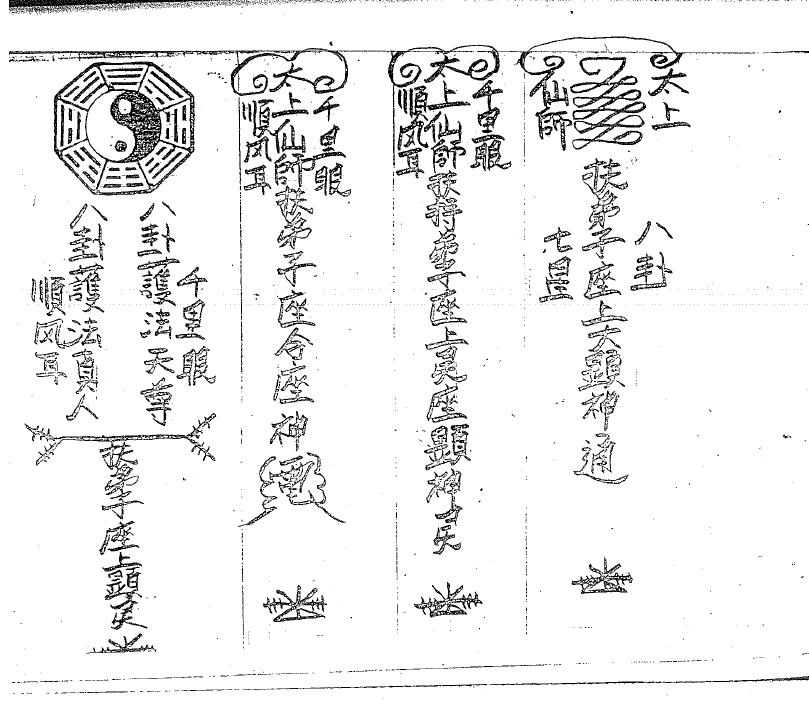 太上
仙師
扶弟子座上大顕神通
八卦
七星
千里眼
太上仙師扶持弟子座上灵座顕神灵
順风耳
千里眼
太上仙師扶弟子座令座神
順风耳
千里眼
八卦護法天尊
八卦護法真人
順风耳
扶弟子座上顕灵